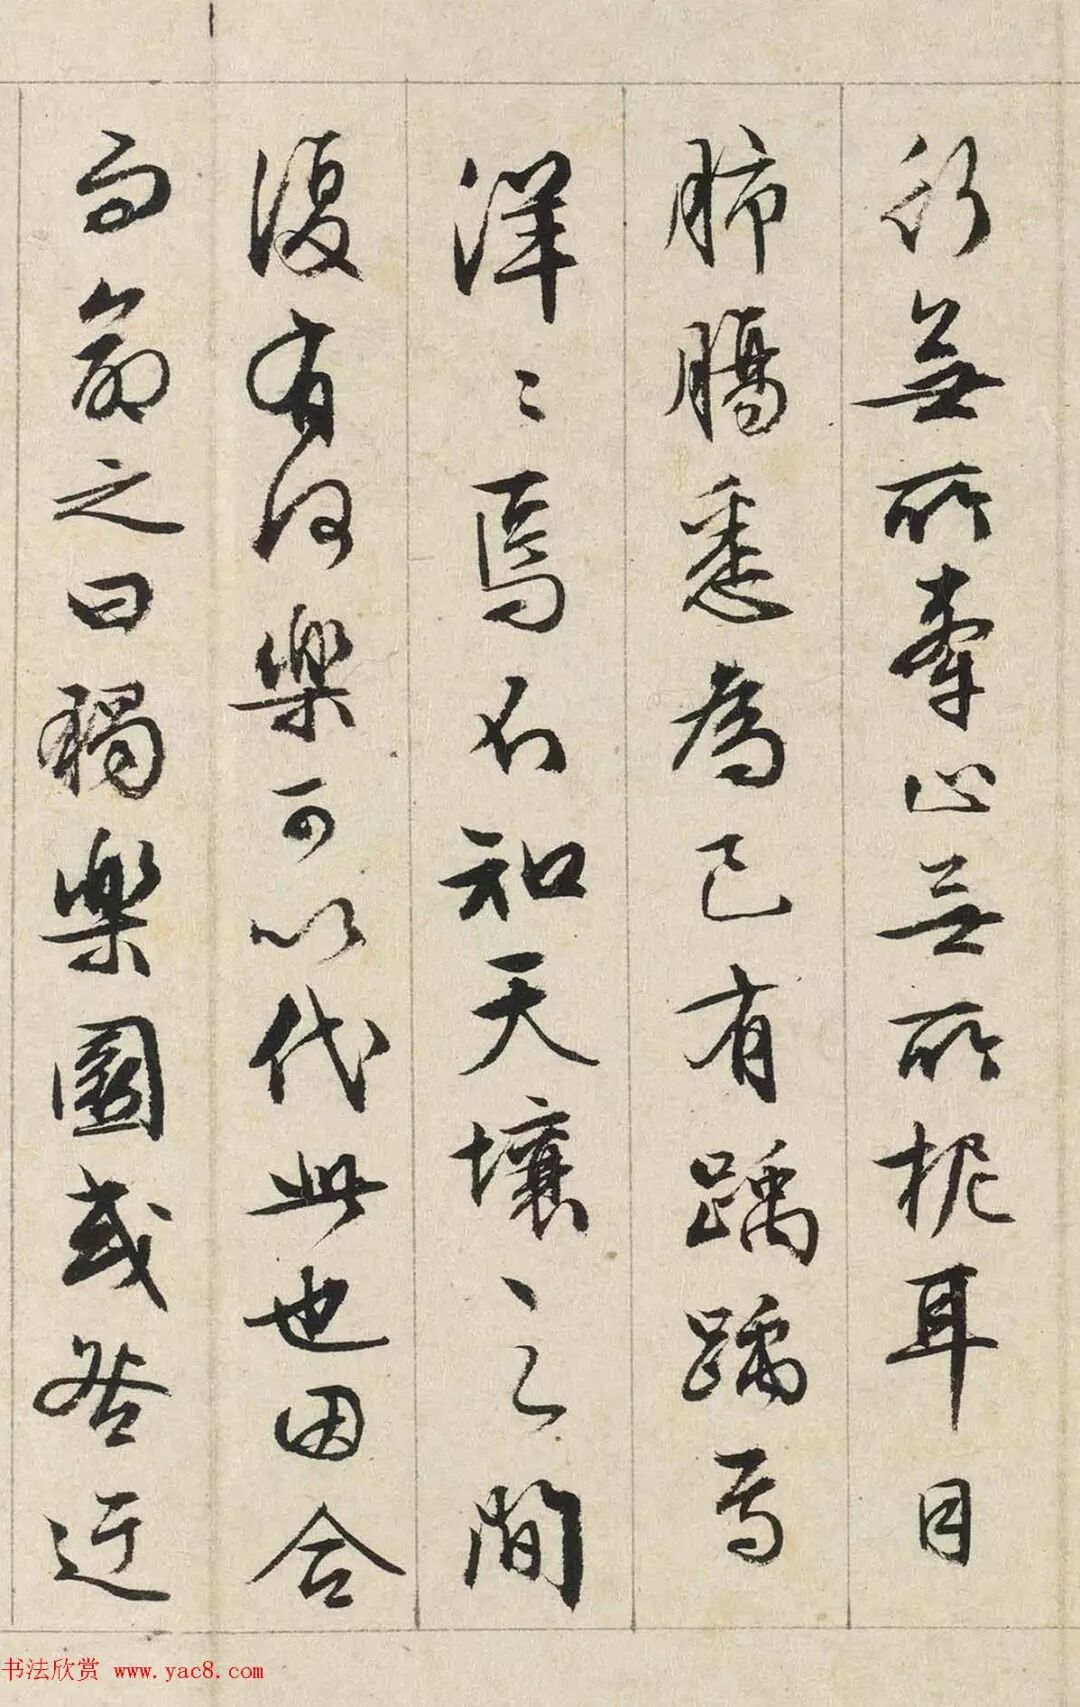 行無所牽止無所柅耳目
肺腸悉為己有踽踽焉
洋〻焉不知天壤之間
復有何樂可以代此也因合
而命之曰獨樂園或咎迂
书法欣赏 www.yac8.com